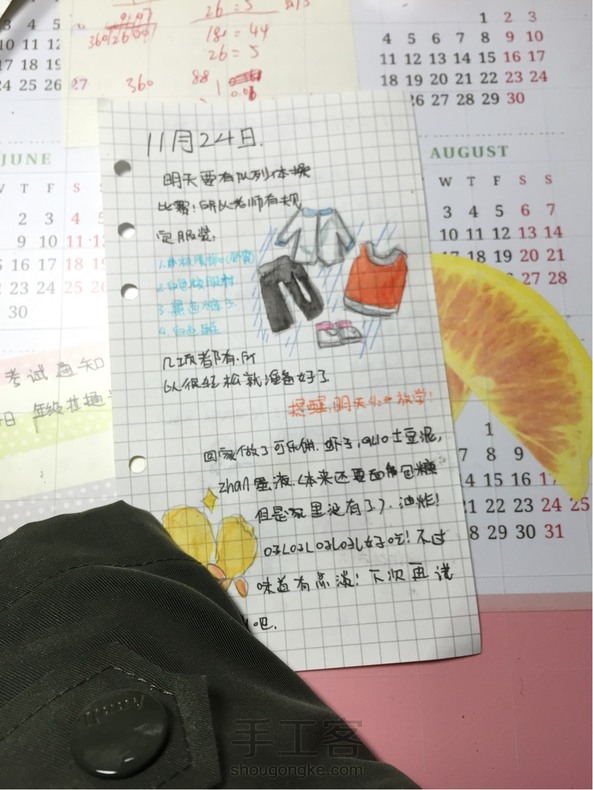 26=5
360
18x=44
26=5
360
88
1
1 2 3
4 5 6 7 8 9 10
11 12 13 14 15 16 17
18 19 20 21 22 23 24
25 26 27 28 29 30
3 4 5
10 11 12
17 18 19
24 25 26 27
JUNE
W T F S S
2 3 4
9 10 11
16 17 18
23 24 25
30
AUGUST
W T F S S
3 4 5 6 7
13 14
20 21
27 28
11月24日.
明天要有队列体操
比赛,所以老师有规
定服装.
1.
2.白色
3.黑色裤子
4.白色鞋
几项都有.所
以很轻松就准备好了
提醒,明天 放学!
回家做了可乐饼.虾子,qiao土豆泥,
zhan蛋液.(本来还要面包糠
但是家里没有了).油炸!
好好吃!不过
味道有点淡!下次再说
吧.
考试通知
年级
1
7 8 9 10
14 15 16 17
22 23 24 25
28 29 30 31
手工客
shougongke.com